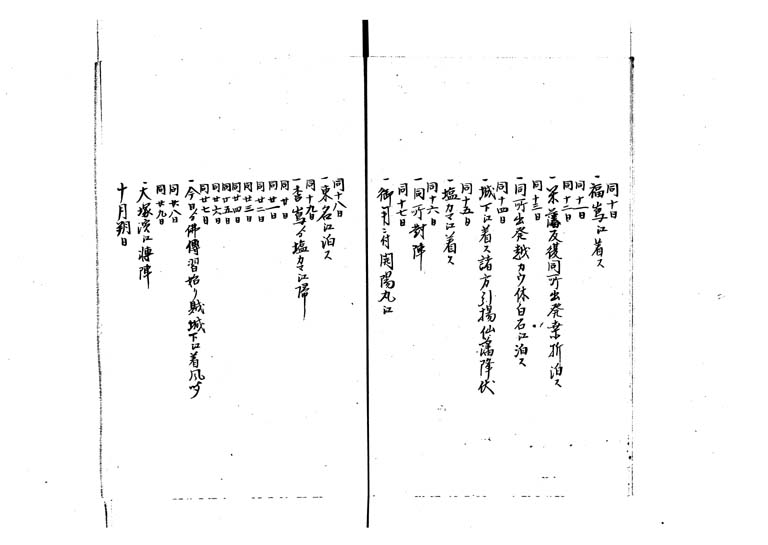 同十日
一福嶌江着ス
同十一日
同十二日
一米藩反復同所出発桑折泊ス
同十三日
一同所出発越カウ休白石江泊ス
同十四日
一城下江着ス諸方引揚仙藩降伏
同十五日
一塩カマ江着ス
同十六日
一同所対陣
同十七日
一御用ニ付開陽丸江
同十八日
一東名江泊ス
同十九日
一李嶌ゟ塩カマ江帰
同廿日
同廿一日
同廿二日
同廿三日
同廿四日
同廿五日
同廿六日
同廿七日
一今日ゟ佛傳習始リ賊城下江着風ゥ
同廿八日
同廿九日
一大塚濱江轉陣
十月朔日